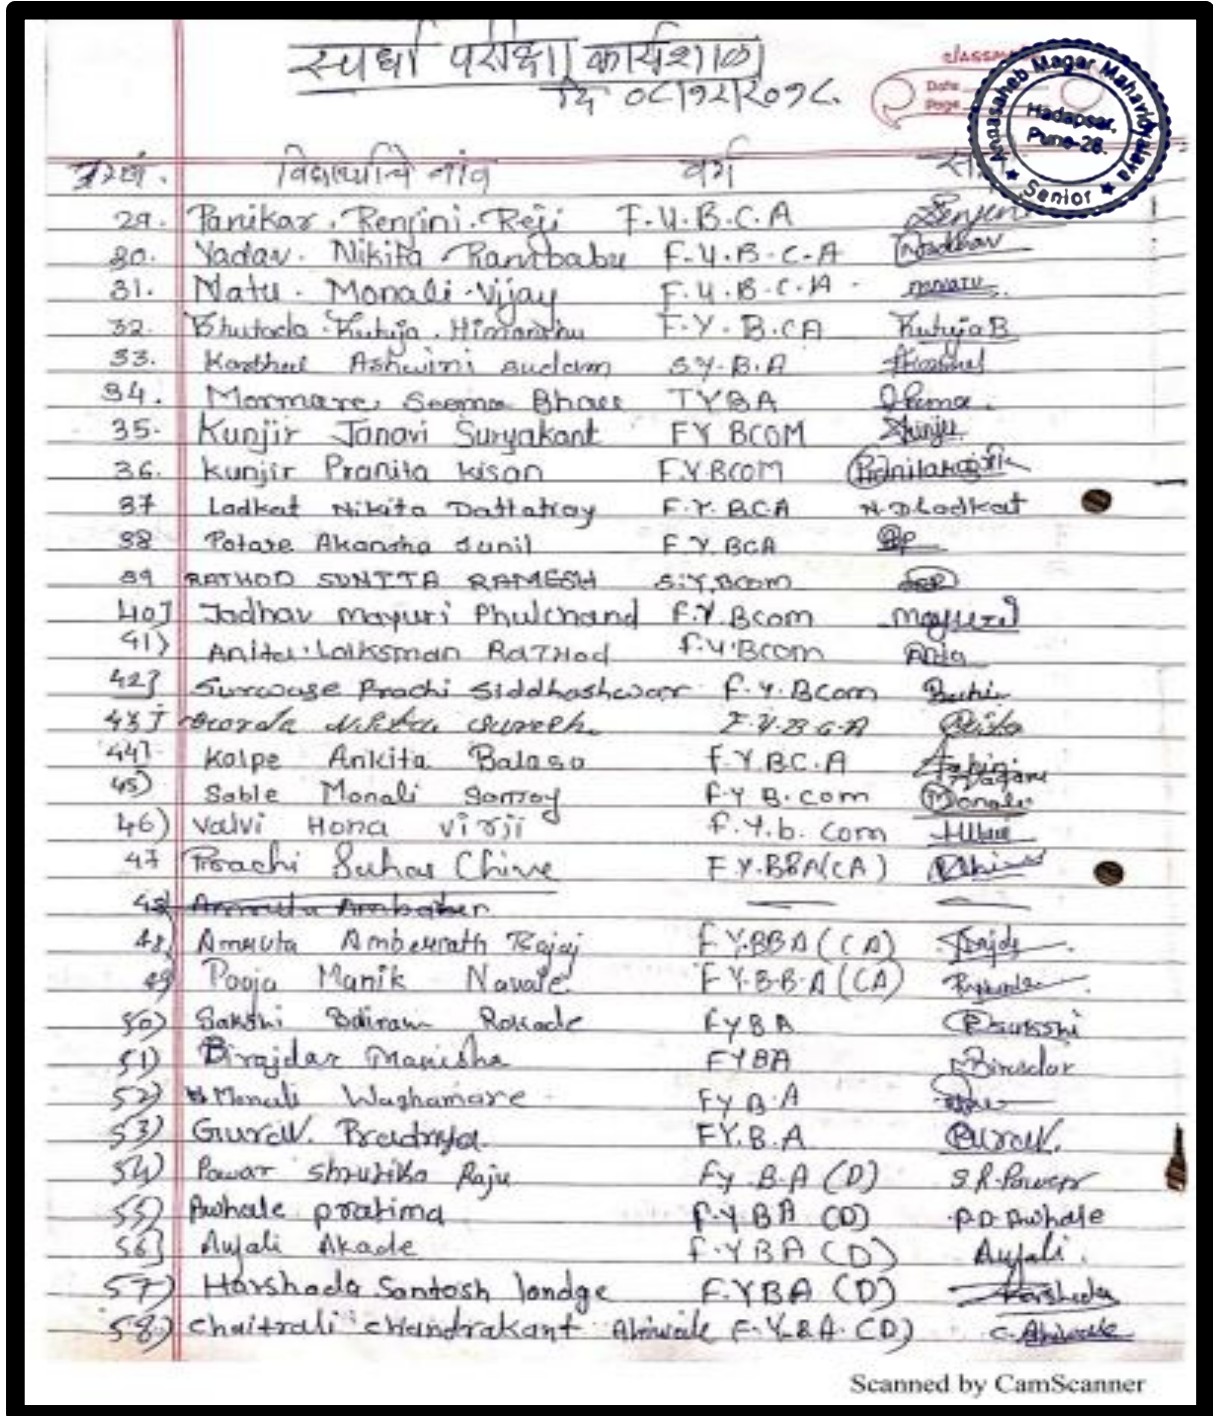 स्पर्धा परीक्षा कार्यशाळा
दि ०८/१२/२०१८.
classmate
Date
Page
Annasaheb Magar Mahavidyalaya
Hadapsar,
Pune-28.
★ Senior ★
विद्यार्थ्याचे नांव वर्ग
29. Panikar. Renjini. Reji F.Y.B.C.A
30. Yadav. Nikita Rambabu F.Y.B.C.A
31. Natu. Monali. Vijay F.Y.B.C.A.
32. Bhutada. Rutuja. Himanshu F.Y.B.CA RutujaB
33. Ashwini Sudam S.Y.B.A
34. Mormare Seema Bhau TYBA
35. Kunjir Janavi Suryakant FY BCOM
36. Kunjir Pranita Kisan F.Y.BCOM
37 Ladkat Nikita Dattatray F.Y.BCA N.D Ladkat
38 Potare Akansha Sunil F.Y.BCA
39 RATHOD SUNITA RAMESH S.Y.Bcom
40] Jadhav Mayuri Phulchand F.Y.Bcom Mayuri
41) Anita Laksman RATHod F.Y.Bcom
42] Surwase Prachi Siddheshwar F.Y.Bcom
43] Suresh F.Y.B.C.A
44] Kalpe Ankita Balasa F.Y.BC.A
45) Sable Monali Sanjay F.Y B.com Monali
46) Valvi Hona virji F.y.b. com
47 Prachi Suhas Chive F.Y.BBA(CA)
48) Amruta Ambaber
48) Amruta Ambernath Bajaj FY.BBA (CA)
49) Pooja Manik Navale FY.B.B.A (CA)
50) Sakshi Rokade FYBA
51) Birajdar Manisha FYBA
52) Monali Waghamare FYB.A
53) Gurav. Pradnya. FY.B.A Gurav.
54) Pawar Shrutika Raju Fy.B.A (D) S.R.Pawar
55) Awhale pratima F.Y.BA (D) P.D.Awhale
56] Anjali Akade F.YBA (D) Anjali.
57) Harshada Santosh londge F.YBA (D) Harshada
58) Chaitrali Chandrakant Ahiwale F.Y.B.A.(D) C.Ahiwale
Scanned by CamScanner